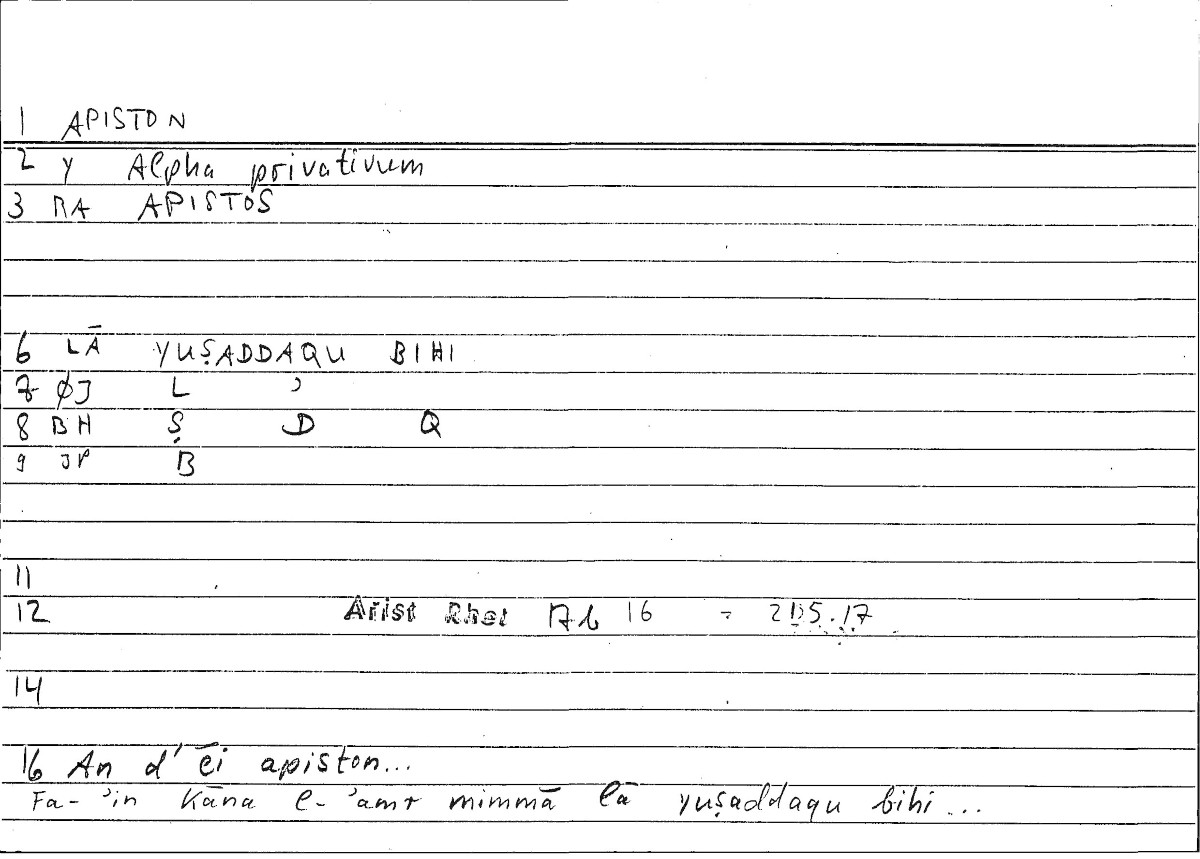 1 APISTON
2 Y Alpha privativum
3 RA APISTOS
6 LĀ YUṢADDAQU BIHI
7 ØJ L ʾ
8 BH Ṣ D Q
9 JP B
11
12 Arist Rhet 17b 16 = 205.17
14
16 An d' ēi apiston...
Fa-ʾin Kāna l-ʾamr mimmā lā yuṣaddaqu bihi...